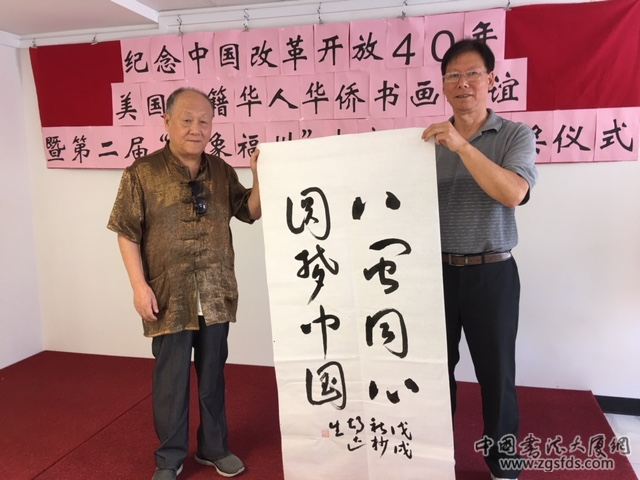 纪念中国改革开放40年
美国籍华人华侨书画谊
暨第二届“象福州”仪式
八闽同心
圆梦中国
戊戌
生
中国书法大厦网
www.zgsfds.com